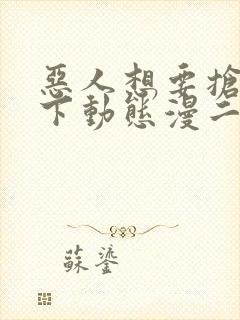 惡人想要搶
下動態漫二
蘇鎏